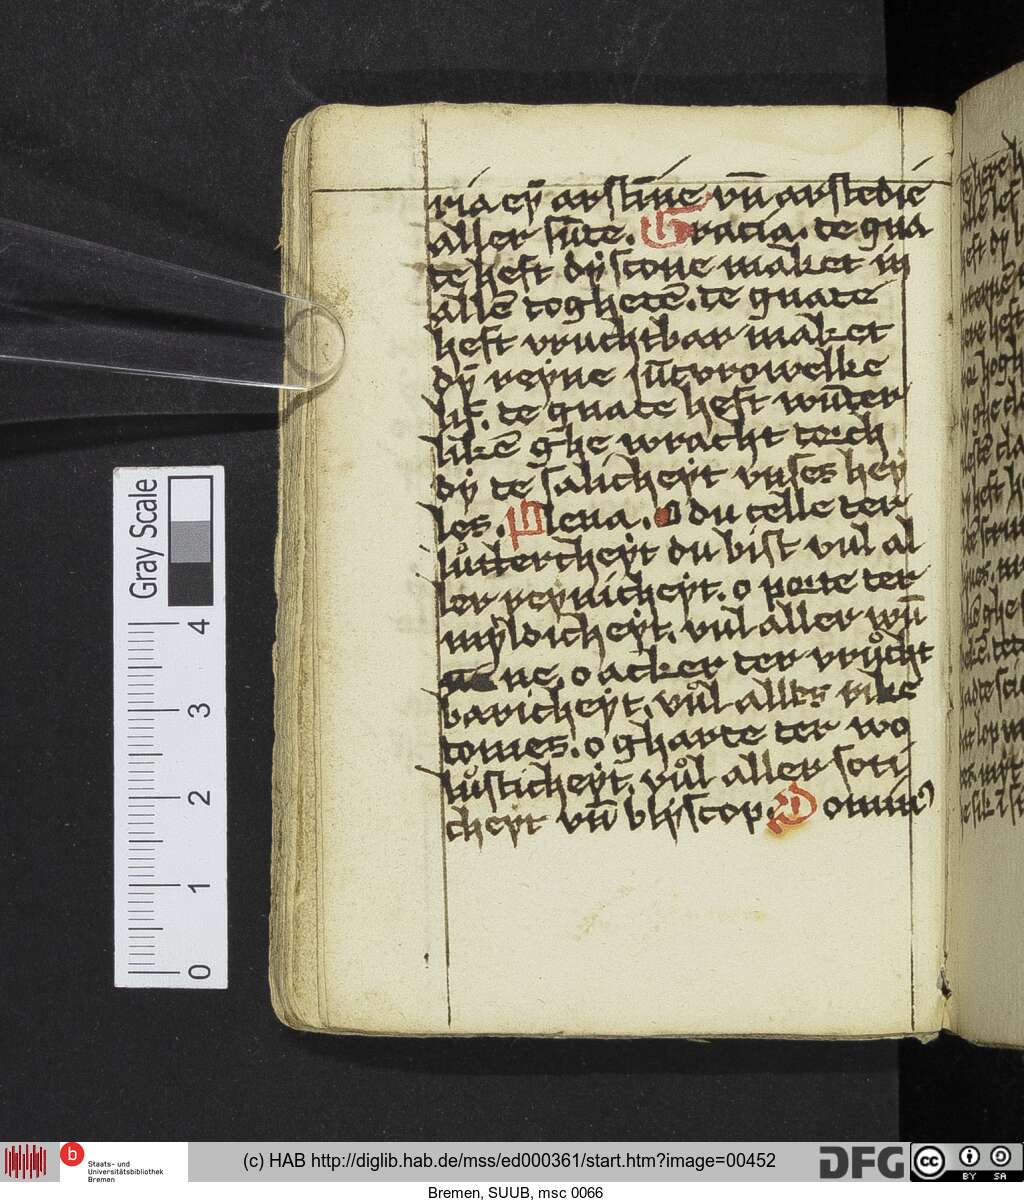 ria eÿ arstīne vn̄ arstedie
aller sūte. Gracia. te gna
te heft dÿ scone maket in
allē togheten̄. te gnate
heft vruchtbar maket
dÿ reyne iūcvrowelke
lif. te gnate heft wūter
likē ghe wracht torch
dÿ te salicheÿt vnses hey
les. Plena. O du celle ter
lůttercheÿt du bist vul al
ler reynicheÿt. o porte ter
mÿldicheÿt. vul aller wū
ne. o acker ter vrůcht
baricheÿt. vůl alles rike
tomes. o gharte ter wo
lůsticheÿt. vůl aller soti
cheÿt vn̄ blÿscop. Dominꝰ
Gray Scale
4
3
2
1
0
b
Staats- und
Universitätsbibliothek
Bremen
(c) HAB http://diglib.hab.de/mss/ed000361/start.htm?image=00452
DFG
cc
BY SA
Bremen, SUUB, msc 0066